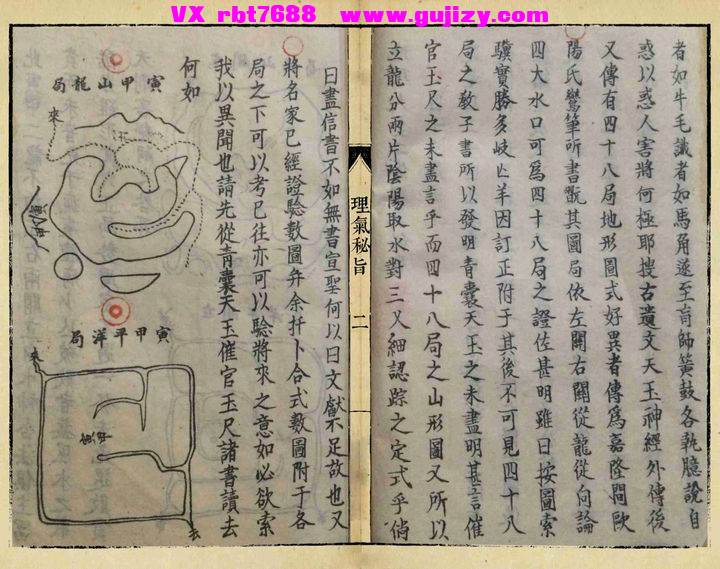 VX rbt7688 www.gujizy.com
者如牛毛識者如馬角遂至盲師簧鼓各執臆說自
惑以惑人害將何極耶搜古遺文天玉神經外傳後
又傳有四十八局地形圖式好異者傳為嘉隆間歐
陽氏鸞筆所書翫其圖局依左關右關從龍從向論
四大水口可為四十八局之證佐甚明雖曰按圖索
驥實勝多岐亡羊因訂正附于其後不可見四十八
局之教子書所以發明青囊天玉之未盡明甚言催
官玉尺之未盡言乎而四十八局之山形圖又所以
立龍分兩片陰陽取水對三叉細認踪之定式乎倘
理氣秘旨
二
曰盡信書不如無書宣聖何以曰文獻不足故也又
將名家已經證驗數圖弁余扦卜合式數圖附于各
局之下可以考已往亦可以驗將來之意如必欲索
我以異聞也請先從青囊天玉催官玉尺諸書讀去
何如
寅甲山龍局
來
寅甲平洋局
來
去